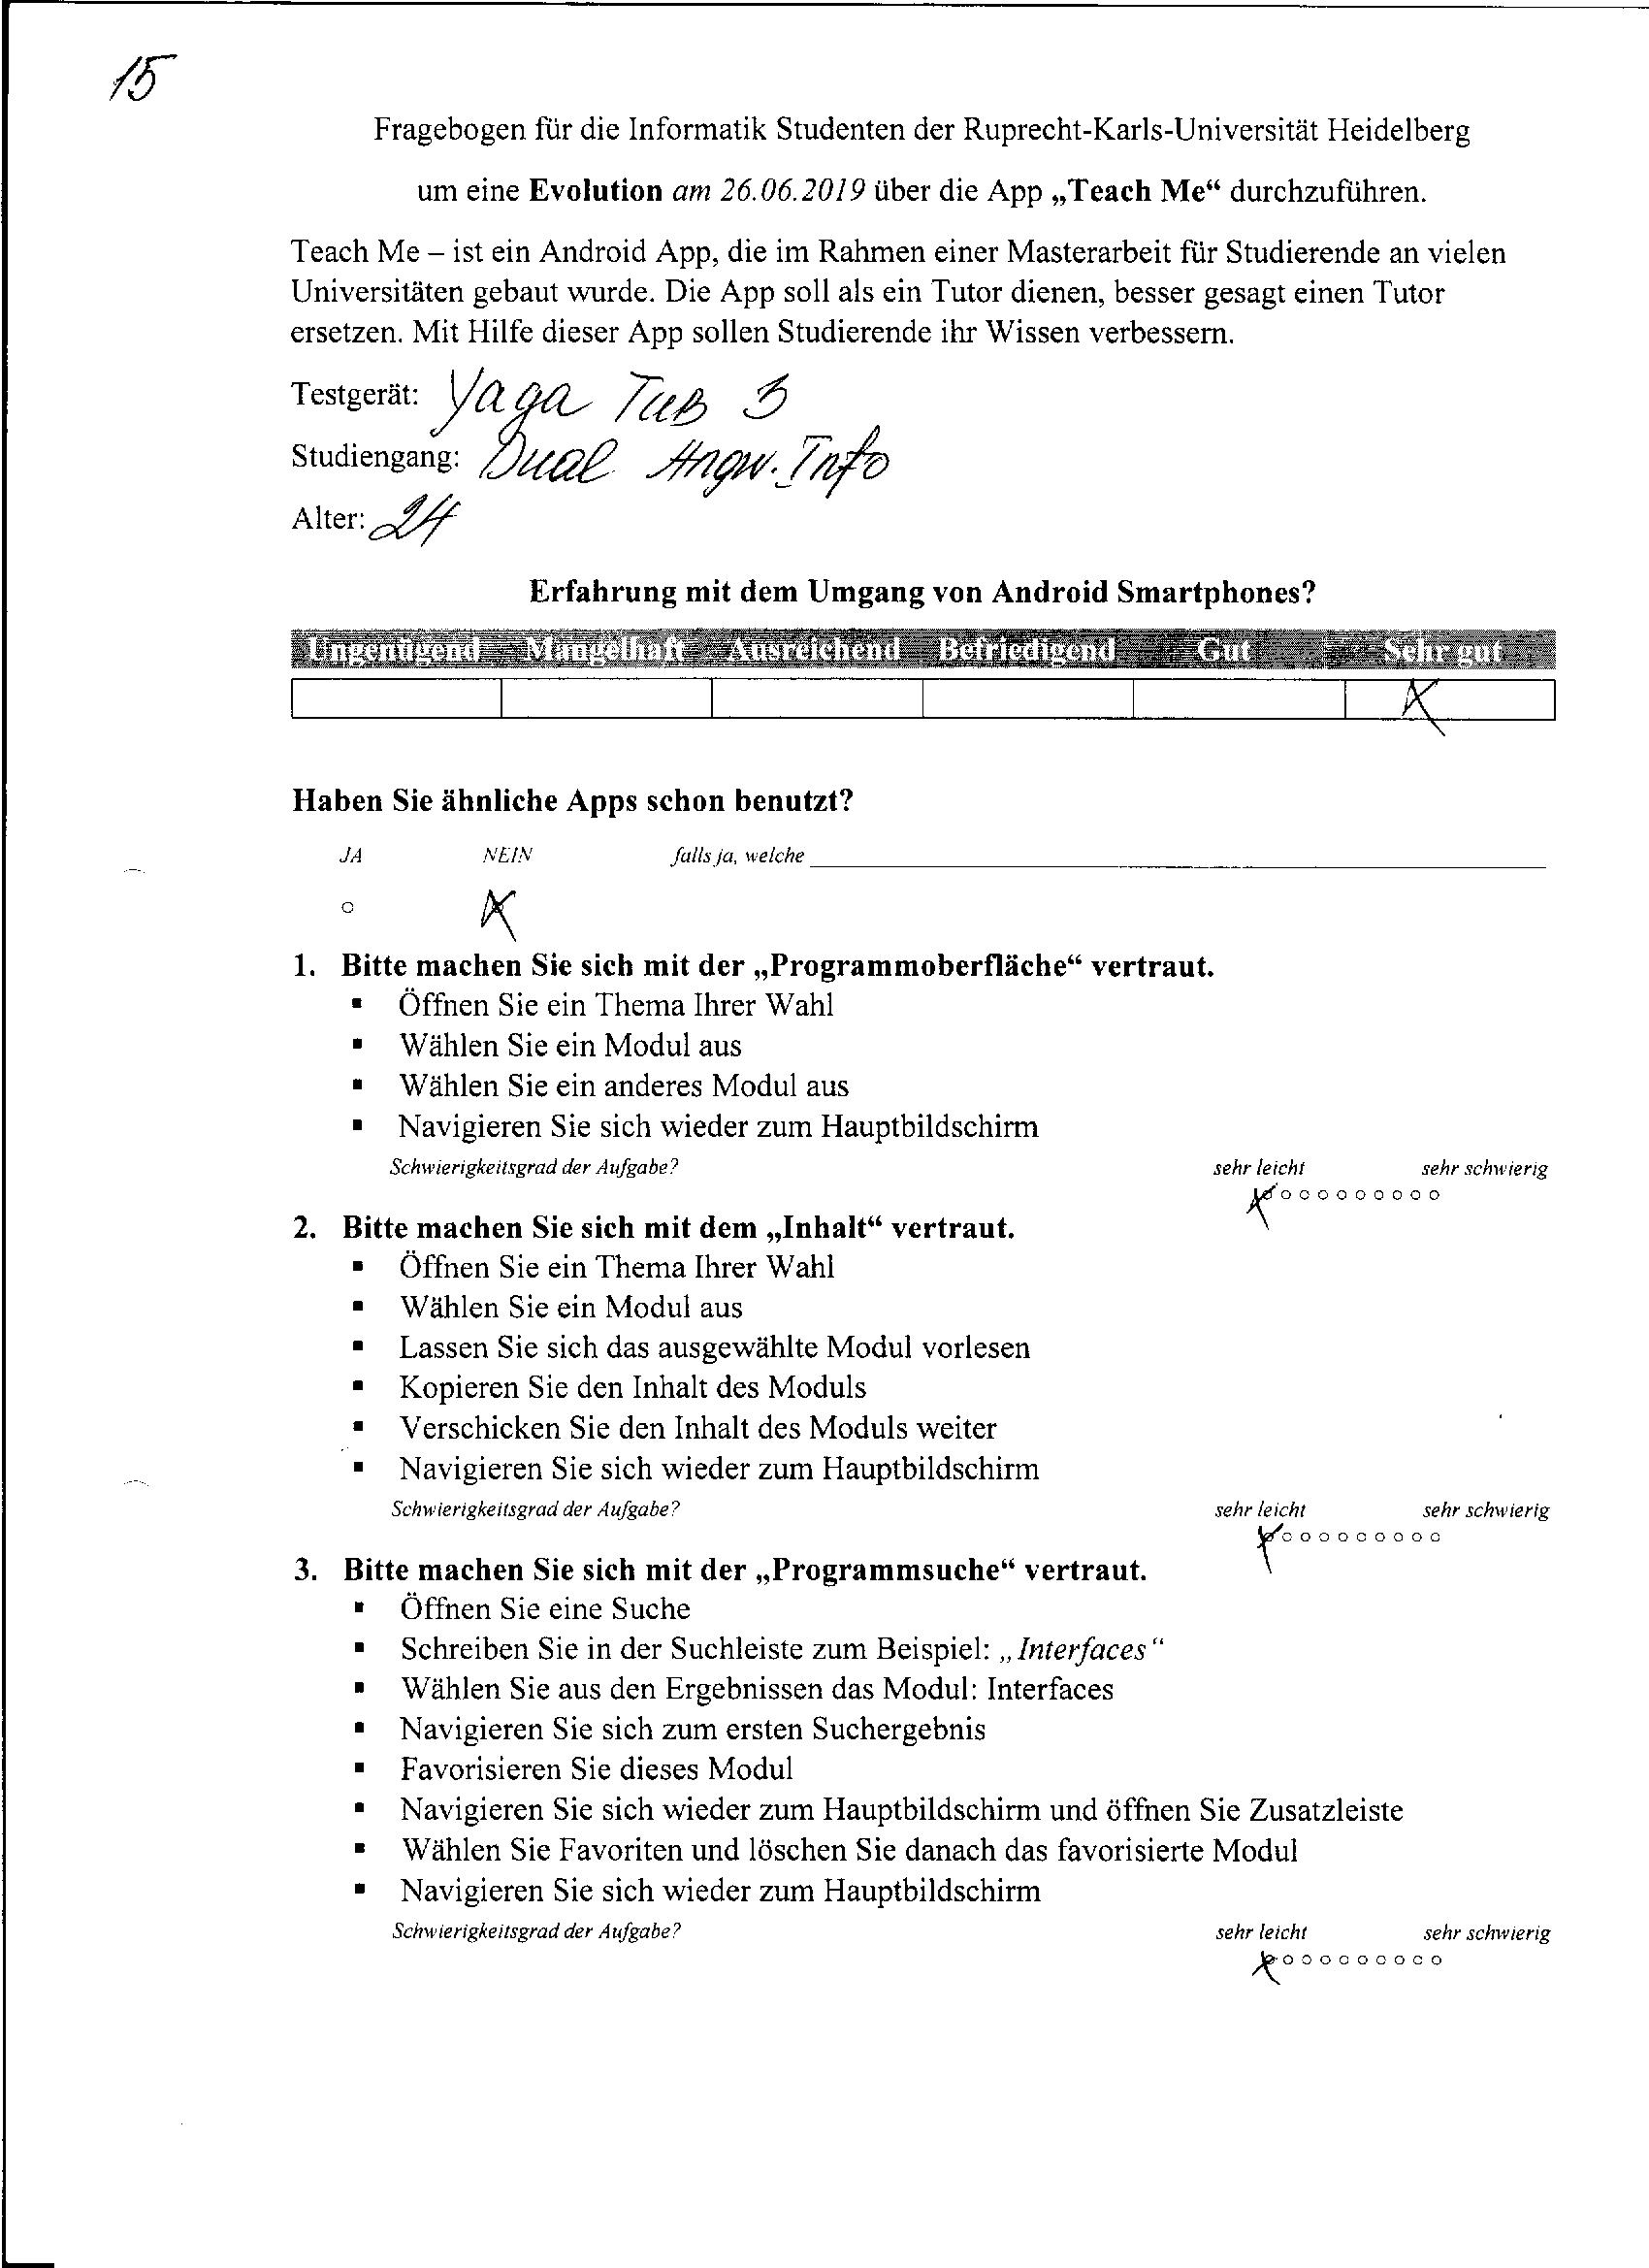 15
Fragebogen für die Informatik Studenten der Ruprecht-Karls-Universität Heidelberg
um eine Evolution am 26.06.2019 über die App „Teach Me“ durchzuführen.
Teach Me – ist ein Android App, die im Rahmen einer Masterarbeit für Studierende an vielen
Universitäten gebaut wurde. Die App soll als ein Tutor dienen, besser gesagt einen Tutor
ersetzen. Mit Hilfe dieser App sollen Studierende ihr Wissen verbessern.
Testgerät: Yaga Tab 3
Studiengang: Dual Angw. Info
Alter: 24
Erfahrung mit dem Umgang von Android Smartphones?
Ungenügend Mangelhaft Ausreichend Befriedigend Gut Sehr gut
Haben Sie ähnliche Apps schon benutzt?
JA NEIN falls ja, welche
1. Bitte machen Sie sich mit der „Programmoberfläche“ vertraut.
▪ Öffnen Sie ein Thema Ihrer Wahl
▪ Wählen Sie ein Modul aus
▪ Wählen Sie ein anderes Modul aus
▪ Navigieren Sie sich wieder zum Hauptbildschirm
Schwierigkeitsgrad der Aufgabe? sehr leicht sehr schwierig
2. Bitte machen Sie sich mit dem „Inhalt“ vertraut.
▪ Öffnen Sie ein Thema Ihrer Wahl
▪ Wählen Sie ein Modul aus
▪ Lassen Sie sich das ausgewählte Modul vorlesen
▪ Kopieren Sie den Inhalt des Moduls
▪ Verschicken Sie den Inhalt des Moduls weiter
▪ Navigieren Sie sich wieder zum Hauptbildschirm
Schwierigkeitsgrad der Aufgabe? sehr leicht sehr schwierig
3. Bitte machen Sie sich mit der „Programmsuche“ vertraut.
▪ Öffnen Sie eine Suche
▪ Schreiben Sie in der Suchleiste zum Beispiel: „Interfaces“
▪ Wählen Sie aus den Ergebnissen das Modul: Interfaces
▪ Navigieren Sie sich zum ersten Suchergebnis
▪ Favorisieren Sie dieses Modul
▪ Navigieren Sie sich wieder zum Hauptbildschirm und öffnen Sie Zusatzleiste
▪ Wählen Sie Favoriten und löschen Sie danach das favorisierte Modul
▪ Navigieren Sie sich wieder zum Hauptbildschirm
Schwierigkeitsgrad der Aufgabe? sehr leicht sehr schwierig